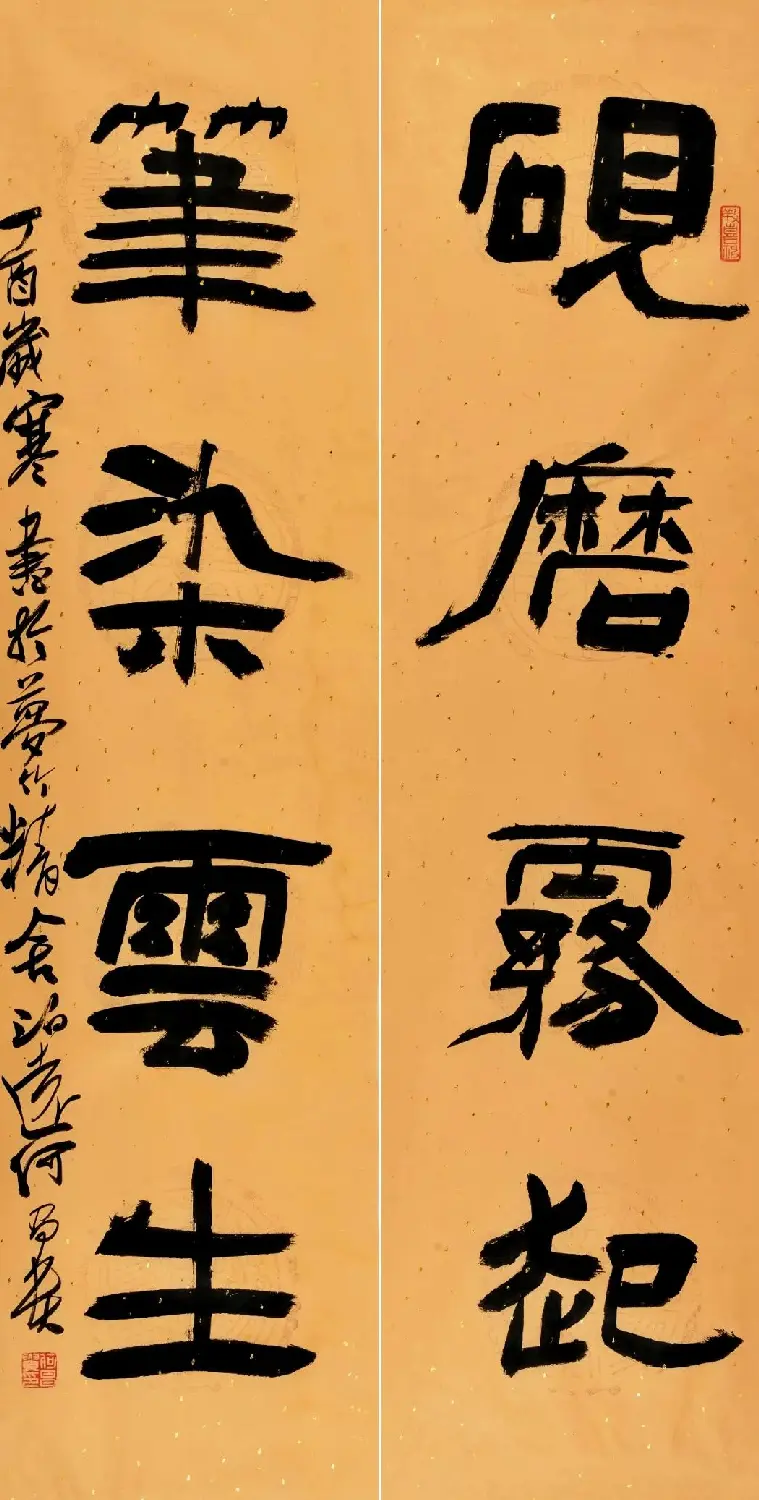 硯磨霧起
筆染雲生
丁酉歲寒書於夢竹精舍泊遠何